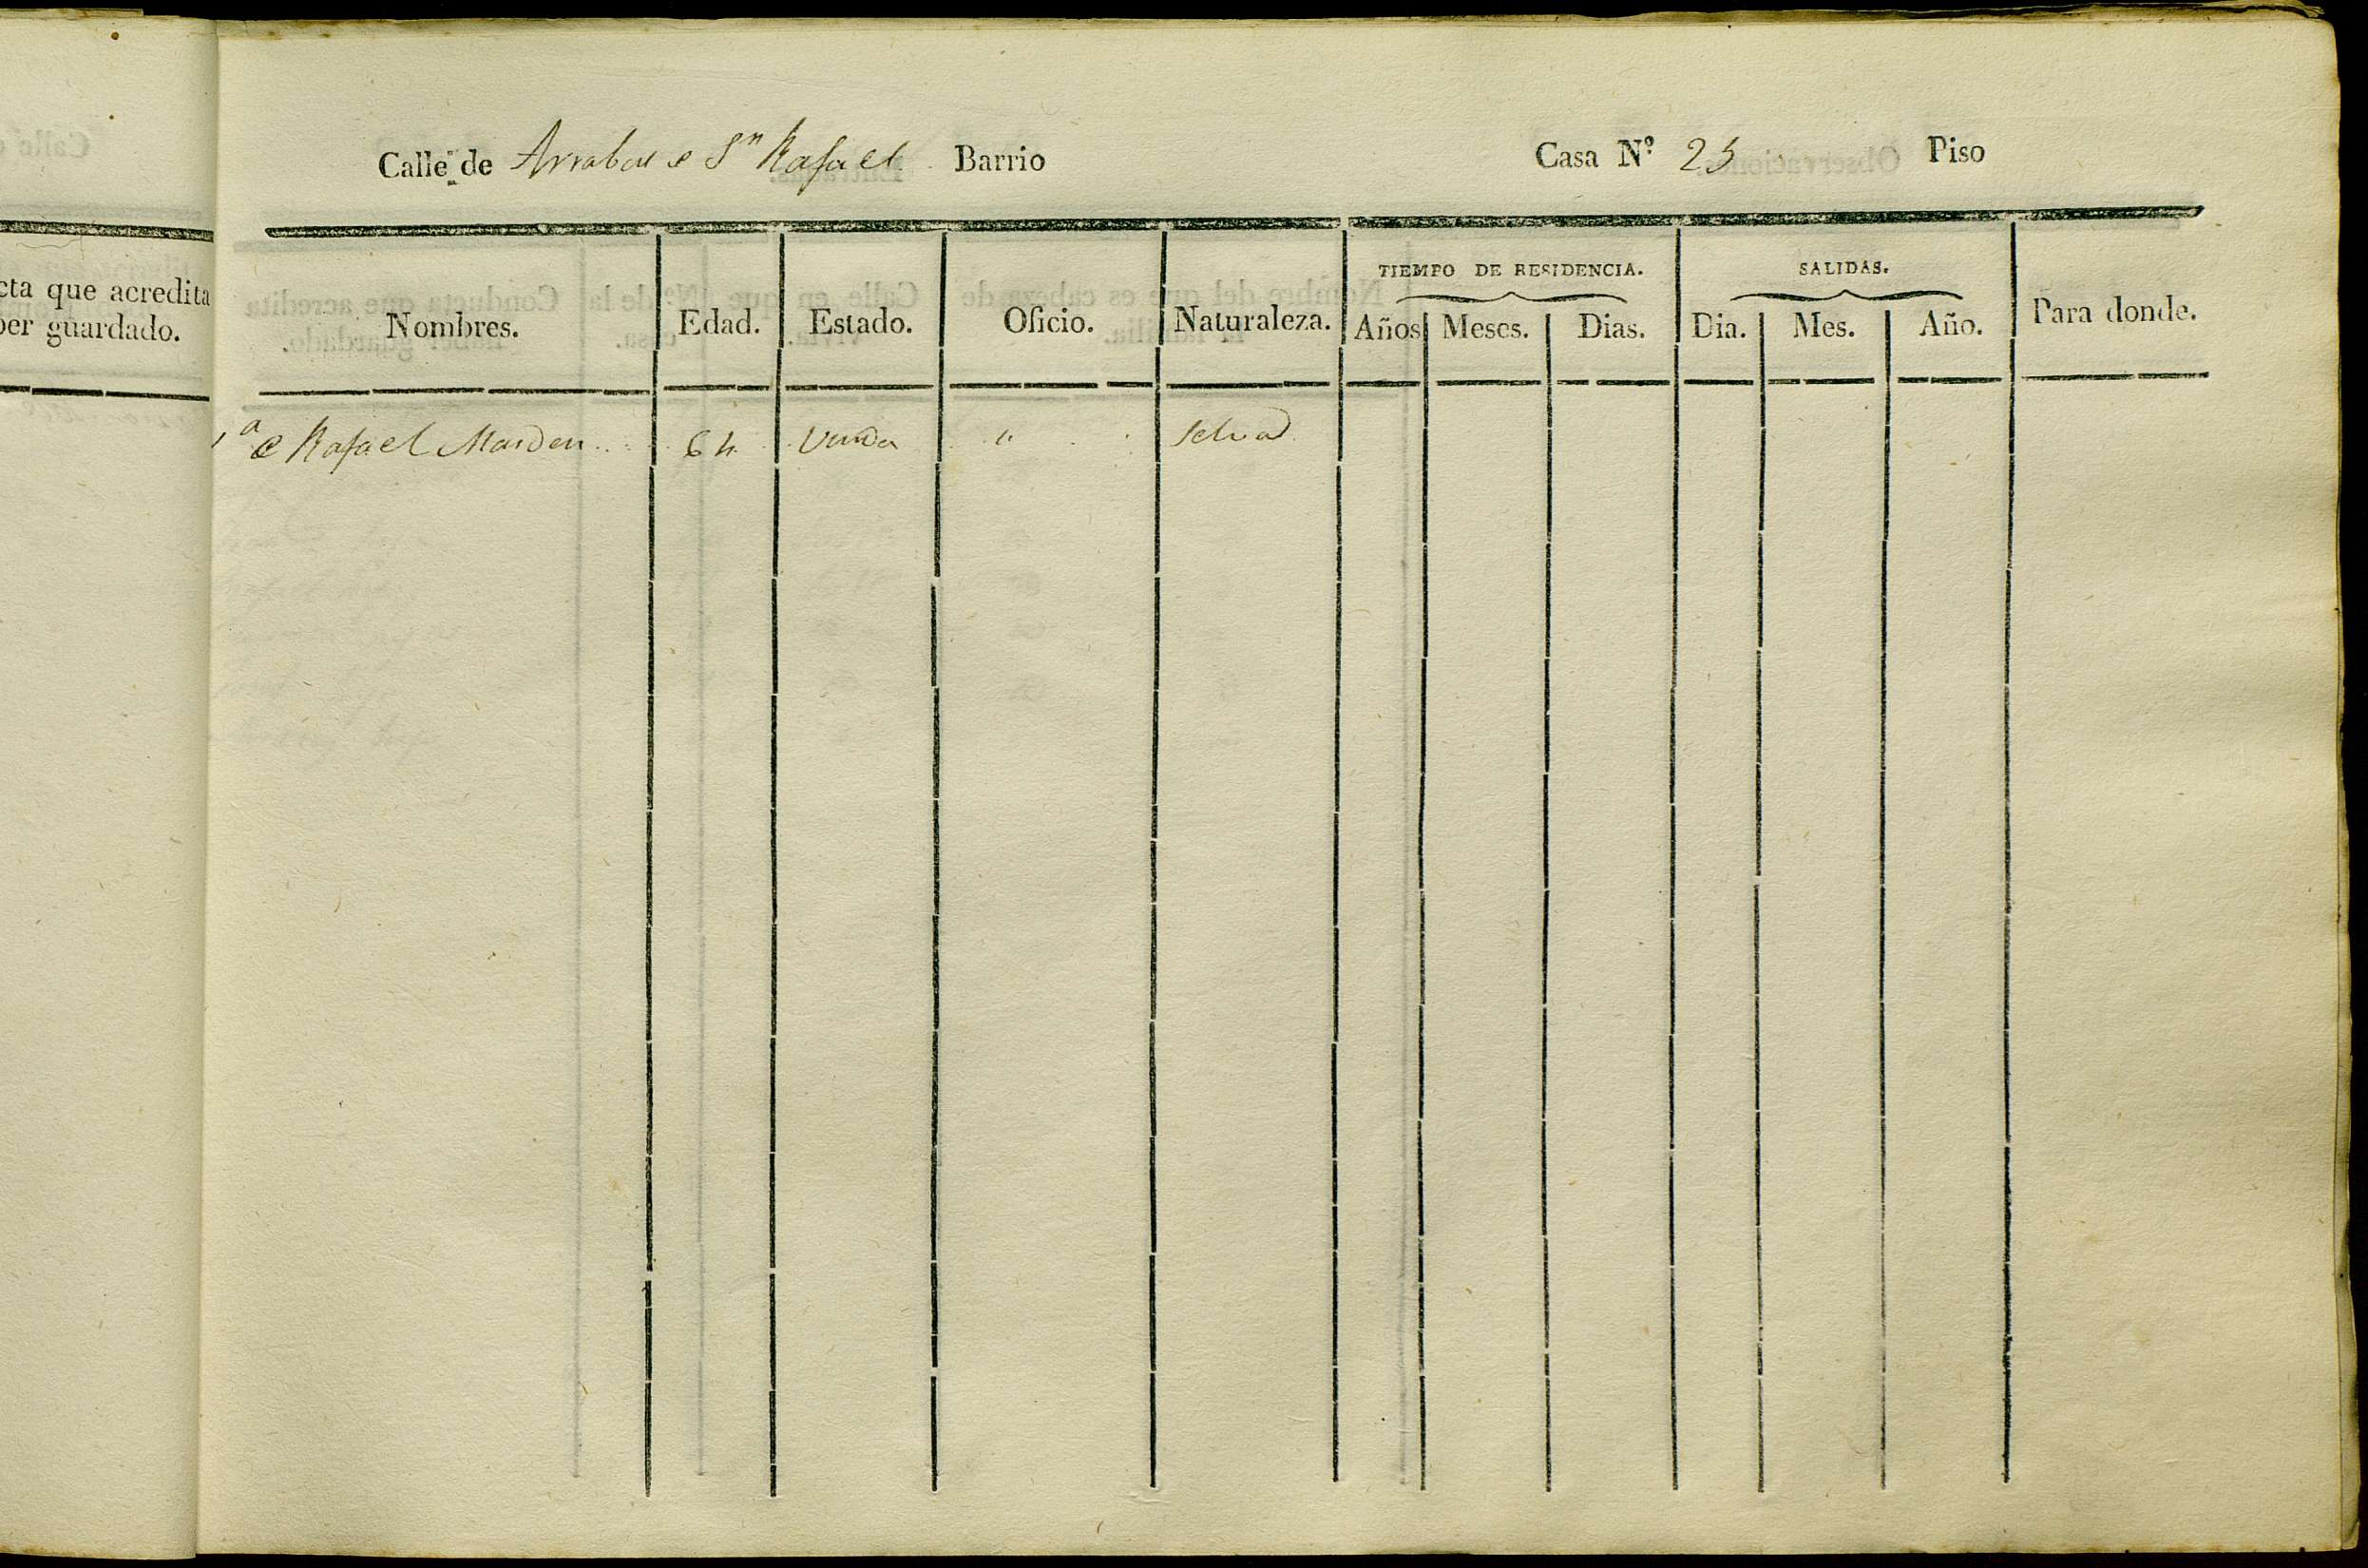 cta que acredita
ber guardado.
Calle de Arrabal e Sn Rafael Barrio Casa Nº 25 Piso
TIEMPO DE RESIDENCIA. SALIDAS.
Nombres. Edad. Estado. Oficio. Naturaleza. Años Meses. Dias. Dia. Mes. Año. Para donde.
e Rafael 64 Viuda "